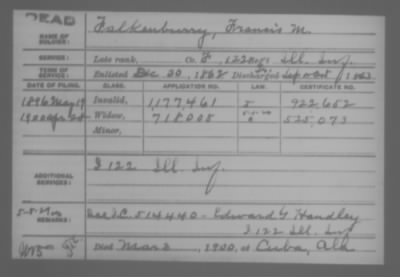 DEAD
NAME OF SOLDIER: Falkenburry, Francis M.
SERVICE: Late rank, Co. F, 122 Reg't Ill. Inf.
TERM OF SERVICE: Enlisted Dec 20, 1862 Discharged
DATE OF FILING. CLASS. APPLICATION NO. LAW. CERTIFICATE NO.
1896 May 19 Invalid, 1,177,461 922,652
1900 Apr 28 Widow, 718,008 525,073
Minor,
ADDITIONAL SERVICES: I 122 Ill. Inf.
REMARKS: 514440 - Edward G. Handley
I 122 Ill. Inf
Died Mar 2, 1900, at Cuba, Ala